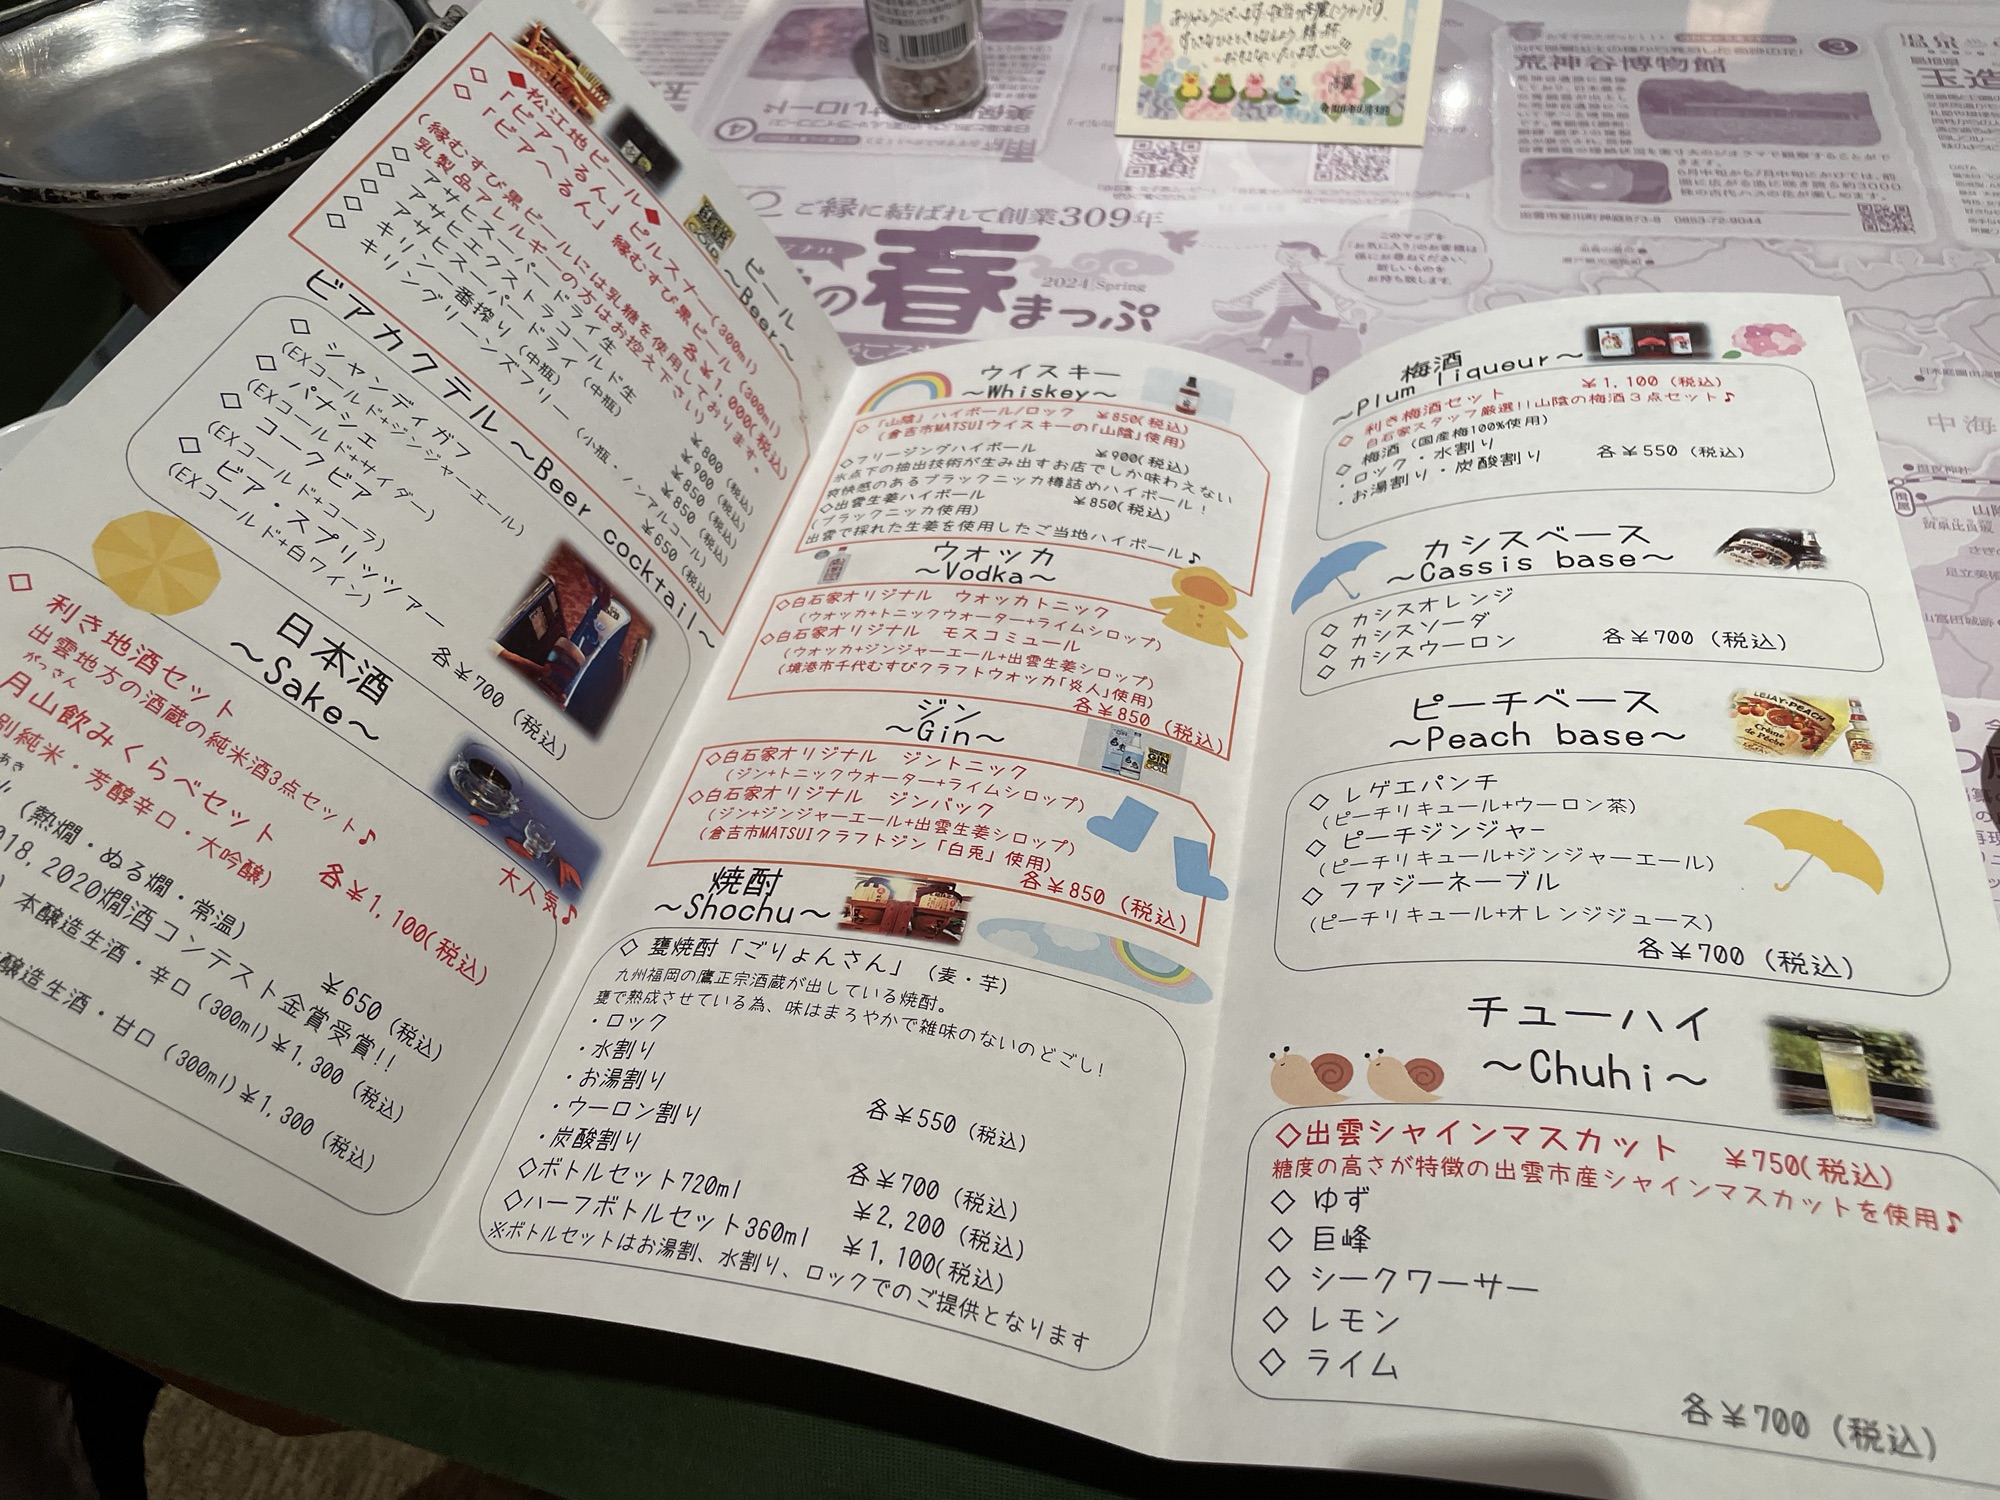 ビール
~Beer~
◆松江地ビール◆
◇「ビアへるん」ピルスナー(300ml)
◇「ビアへるん」縁むすび黒ビール(300ml)
各¥1,000(税込)
(縁むすび黒ビールには乳糖を使用しております。
乳製品アレルギーの方はお控え下さい)
◇ アサヒスーパードライ生
◇ アサヒエクストラコールド生
◇ アサヒスーパードライ(中瓶)
◇ キリン一番搾り(中瓶)
◇ キリングリーンズフリー(小瓶・ノンアルコール)
¥800(税込)
¥900(税込)
¥850(税込)
¥850(税込)
¥650(税込)
ビアカクテル~Beer cocktail~
◇ シャンディガフ
(EXコールド+ジンジャーエール)
◇ パナシェ
(EXコールド+サイダー)
◇ コークビア
(EXコールド+コーラ)
◇ ビア・スプリッツァー
(EXコールド+白ワイン)
各¥700(税込)
日本酒
~Sake~
◇ 利き地酒セット
出雲地方の酒蔵の純米酒3点セット♪
がっさん
月山飲みくらべセット
別純米・芳醇辛口・大吟醸)
各¥1,100(税込)
大人気♪
(熱燗・ぬる燗・常温)
¥650(税込)
018,2020燗酒コンテスト金賞受賞!!
本醸造生酒・辛口(300ml)¥1,300(税込)
醸造生酒・甘口(300ml)¥1,300(税込)
ウイスキー
~Whiskey~
◇「山陰」ハイボール/ロック ¥850(税込)
(倉吉市MATSUIウイスキーの「山陰」使用)
◇フリージングハイボール ¥900(税込)
氷点下の抽出技術が生み出すお店でしか味わえない
爽快感のあるブラックニッカ樽詰めハイボール!
◇出雲生姜ハイボール ¥850(税込)
(ブラックニッカ使用)
出雲で採れた生姜を使用したご当地ハイボール♪
ウォッカ
~Vodka~
◇白石家オリジナル ウォッカトニック
(ウォッカ+トニックウォーター+ライムシロップ)
◇白石家オリジナル モスコミュール
(ウォッカ+ジンジャーエール+出雲生姜シロップ)
(境港市千代むすびクラフトウォッカ「炎人」使用)
各¥850(税込)
ジン
~Gin~
◇白石家オリジナル ジントニック
(ジン+トニックウォーター+ライムシロップ)
◇白石家オリジナル ジンバック
(ジン+ジンジャーエール+出雲生姜シロップ)
(倉吉市MATSUIクラフトジン「白兎」使用)
各¥850(税込)
焼酎
~Shochu~
◇ 甕焼酎「ごりょんさん」(麦・芋)
九州福岡の鷹正宗酒蔵が出している焼酎。
甕で熟成させている為、味はまろやかで雑味のないのどごし!
・ロック
・水割り
・お湯割り
各¥550(税込)
・ウーロン割り
・炭酸割り
各¥700(税込)
◇ボトルセット720ml ¥2,200(税込)
◇ハーフボトルセット360ml ¥1,100(税込)
※ボトルセットはお湯割、水割り、ロックでのご提供となります
梅酒
~Plum liqueur~
◇ 利き梅酒セット ¥1,100(税込)
白石家スタッフ厳選!!山陰の梅酒3点セット♪
◇ 梅酒(国産梅100%使用)
・ロック・水割り
・お湯割り・炭酸割り 各¥550(税込)
カシスベース
~Cassis base~
◇ カシスオレンジ
◇ カシスソーダ
◇ カシスウーロン
各¥700(税込)
ピーチベース
~Peach base~
LEJAY-PEACH
Crème de Pêche
◇ レゲエパンチ
(ピーチリキュール+ウーロン茶)
◇ ピーチジンジャー
(ピーチリキュール+ジンジャーエール)
◇ ファジーネーブル
(ピーチリキュール+オレンジジュース)
各¥700(税込)
チューハイ
~Chuhi~
◇出雲シャインマスカット ¥750(税込)
糖度の高さが特徴の出雲市産シャインマスカットを使用♪
◇ ゆず
◇ 巨峰
◇ シークワーサー
◇ レモン
◇ ライム
各¥700(税込)
ご縁に結ばれて創業309年
春
まっぷ
2024 Spring
このマップを
お気に入りのお客様は
係にお尋ねください。
新しいものを
お持ち致します。
荒神谷博物館
3
4
中海